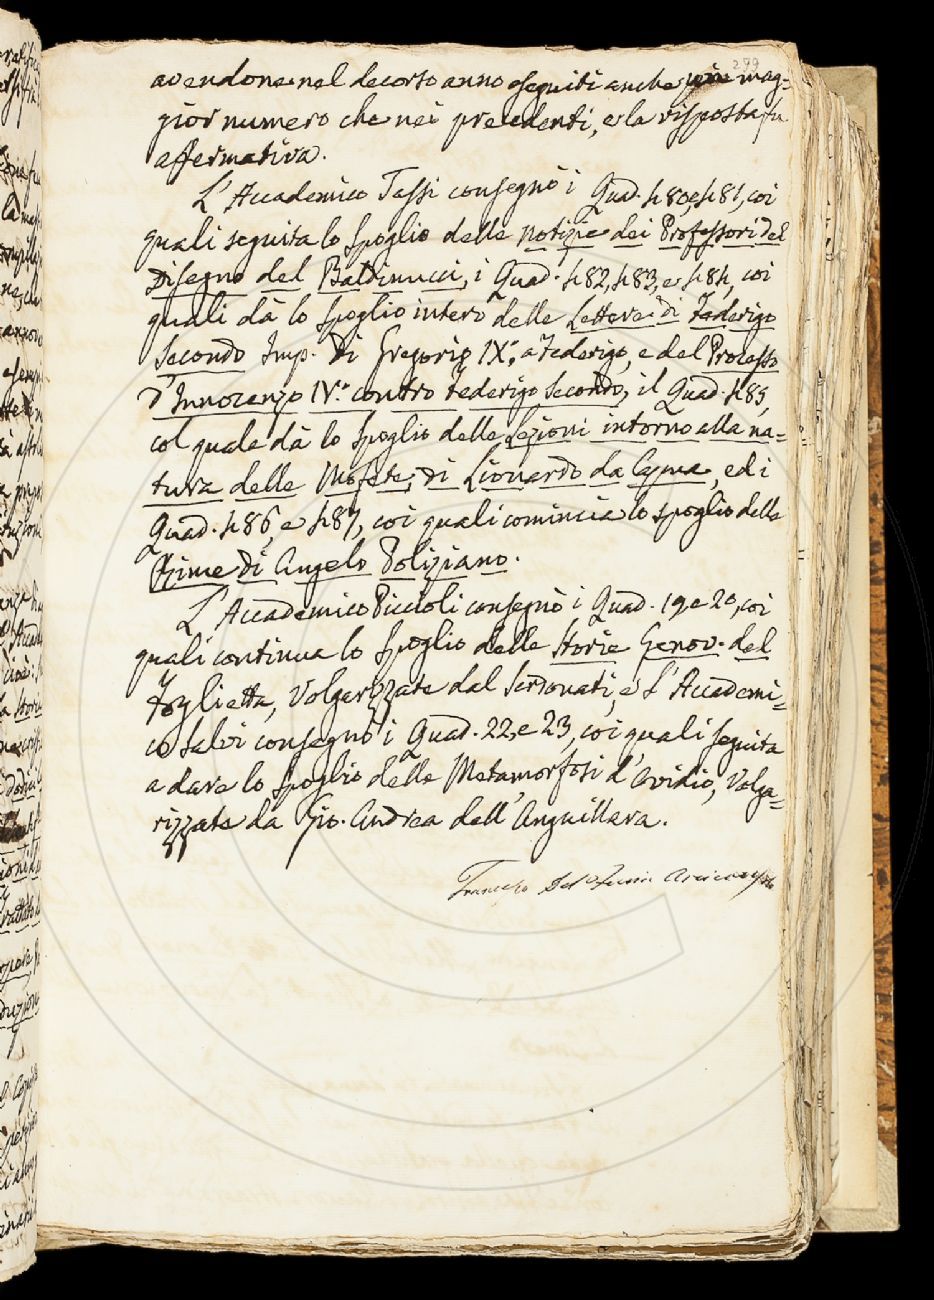 299
avendone nel decorso anno eseguiti anche più mag-
gior numero che nei precedenti, e la risposta fu
affermativa.
L'Accademico Tassi consegnò i Quad. 480, e 481, coi
quali seguita lo spoglio delle notizie dei Professori del
Disegno del Baldinucci, i Quad. 482, 483, e 484, coi
quali dà lo spoglio intero delle Lettere di Federigo
Secondo Imp. di Gregorio IX. a Federigo, e del Processo
d'Innocenzo IV. contro Federigo Secondo, il Quad. 485,
col quale dà lo spoglio delle Lezioni intorno alla na=
tura delle Mofete di Lionardo da Capua, ed i
Quad. 486, e 487, coi quali comincia lo spoglio delle
Rime di Angelo Poliziano.
L'Accademico Piccioli consegnò i Quad. 19 e 20, coi
quali continua lo spoglio delle Storie Genov. del
Foglietta, Volgarizzate dal Serdonati, e l'Accademi=
co Salvi consegnò i Quad. 22, e 23, coi quali seguita
a dare lo spoglio delle Metamorfosi d'Ovidio, Volga=
rizzate da Gio. Andrea dell'Anguillara.
Francesco Del Furia